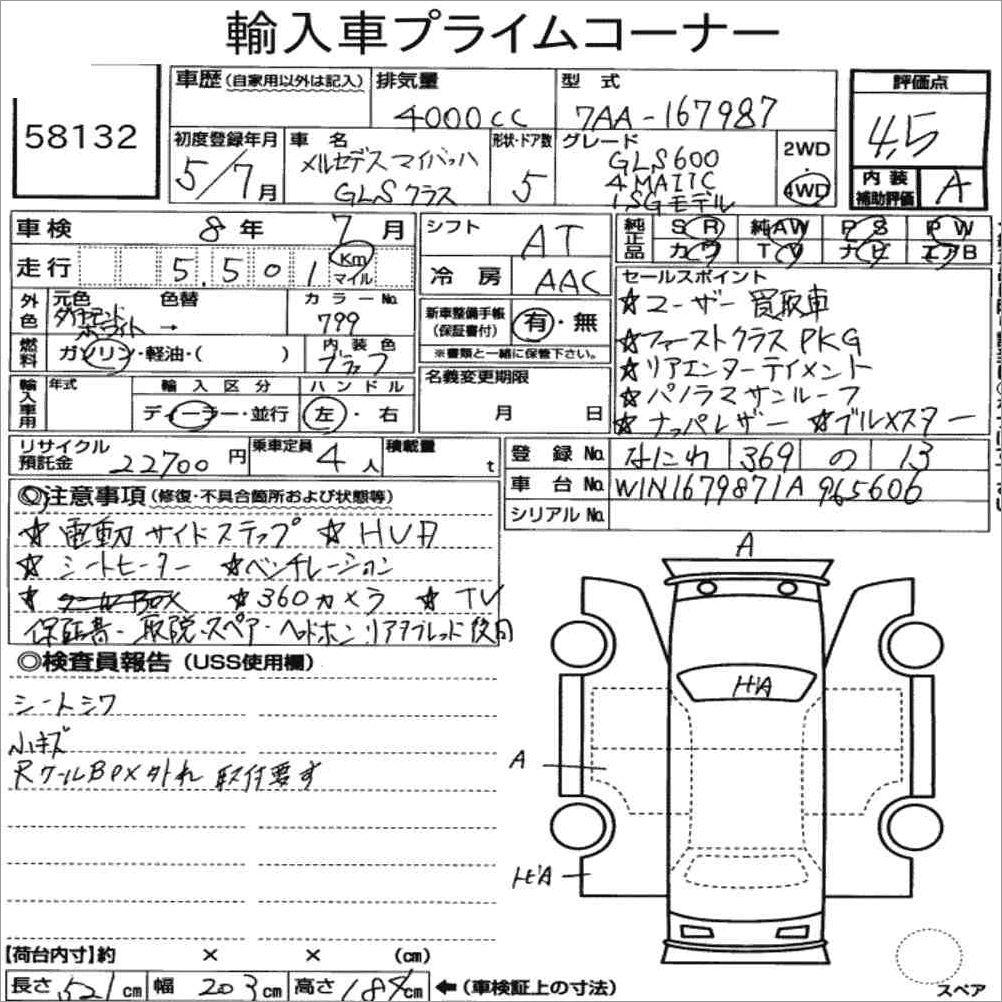 輸入車プライムコーナー
58132
車歴(自家用以外は記入) 排気量 型式 評価点
4000cc 7AA-167987 4.5
初度登録年月 車名 形状・ドア数 グレード 2WD
5/7月 メルセデスマイバッハ GLSクラス 5 GLS600 4MATIC ISGモデル 4WD
内装補助評価 A
車検 8年 7月 シフト AT 純正品 SR 純AW PS PW
カワ TV ナビ エアB
走行 5,501 Km マイル 冷房 AAC
外色 元色 色替 カラーNo.
ダイヤモンドホワイト → 799
新車整備手帳(保証書付) 有・無
※書類と一緒に保管下さい。
燃料 ガソリン・軽油・( ) 内装色 ブラック
セールスポイント
☆ユーザー買取車
☆ファーストクラスPKG
☆リアエンターテイメント
☆パノラマサンルーフ
☆ナッパレザー ☆ブルメスター
名義変更期限
月 日
輸入車用 年式 輸入区分 ハンドル
ディーラー・並行 左・右
リサイクル預託金 22700円 乗車定員 4人 積載量 t
登録No. なにわ 369 の 13
車台No. W1N1679871A965606
シリアルNo.
◎注意事項(修復・不具合箇所および状態等)
☆電動サイドステップ ☆HUD
☆シートヒーター ☆ベンチレーション
☆クールBOX ☆360カメラ ☆TV
保証書・取説・スペア・ヘッドホン・リアタブレット後日
◎検査員報告(USS使用欄)
シートシワ
小キズ
RクールBOX外れ 取付要す
A
ヒビA
A
ヒビA
【荷台内寸】約 × × (cm)
長さ 521cm 幅 203cm 高さ 184cm ←(車検証上の寸法)
スペア